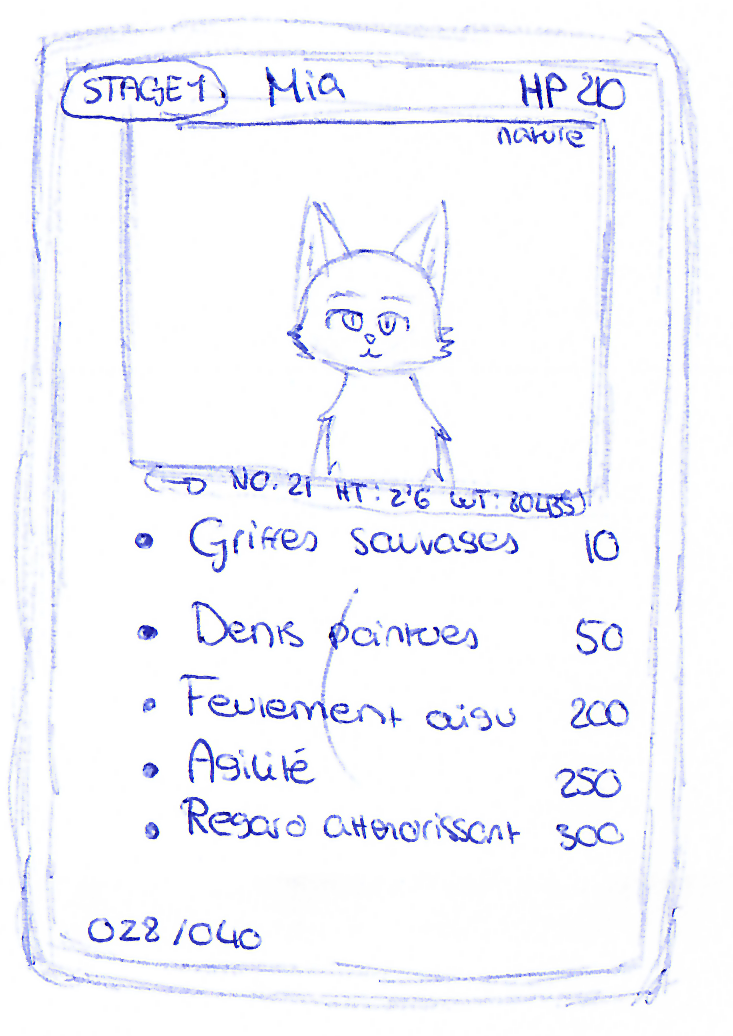 STAGE 1 Mia HP 210
nature
NO. 21 HT: 2'6 WT:
• Griffes sauvages 10
• Dents pointues 50
• Feulement aigu 200
• Agilité 250
• Regard attendrissant 300
028/040